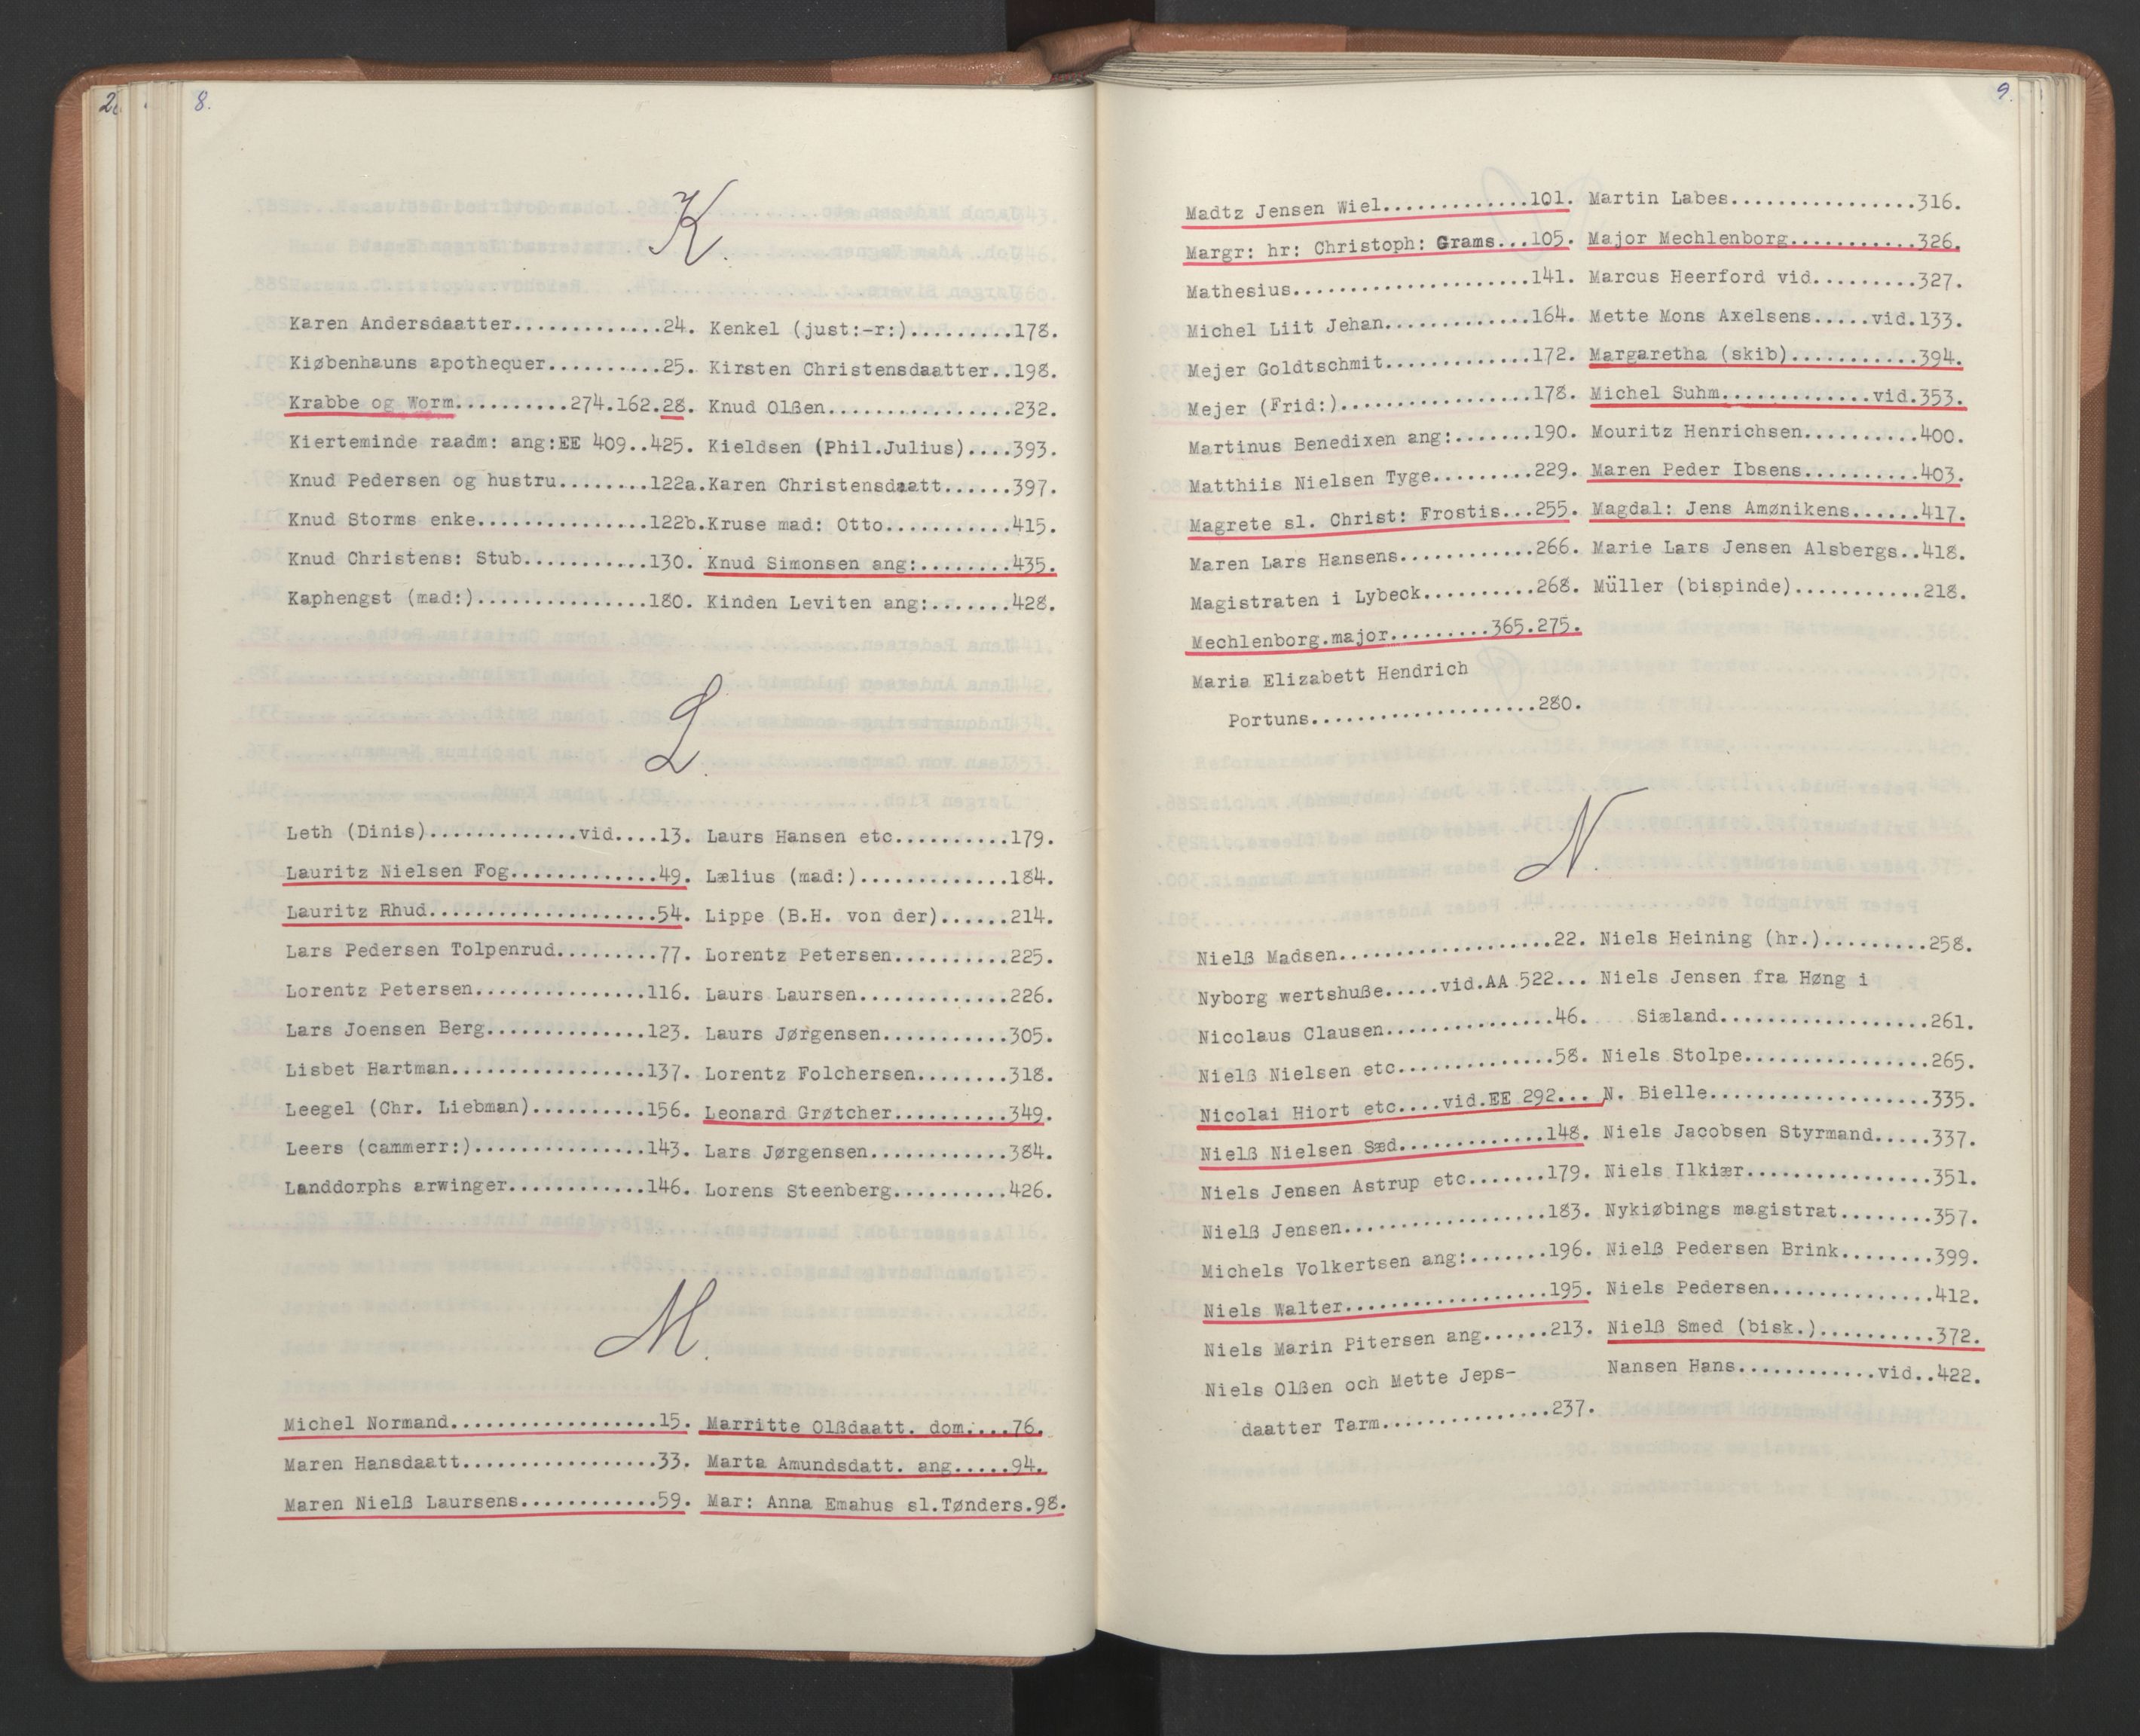 8.
K.
Karen Andersdaatter.............24.
Kiøbenhauns apothequer..........25.
Krabbe og Worm..........274.162.28.
Kierteminde raadm: ang:EE 409..425.
Knud Pedersen og hustru........122a.
Knud Storms enke...............122b.
Knud Christens: Stub...........130.
Kaphengst (mad:)...............180.
Kenkel (just:-r:).........178.
Kirsten Christensdaatter..198.
Knud Olßen................232.
Kieldsen (Phil.Julius)....393.
Karen Christensdaatt......397.
Kruse mad: Otto...........415.
Knud Simonsen ang:........435.
Kinden Leviten ang:.......428.
L.
Leth (Dinis).............vid....13.
Lauritz Nielsen Fog.............49.
Lauritz Rhud....................54.
Lars Pedersen Tolpenrud.........77.
Lorentz Petersen...............116.
Lars Joensen Berg..............123.
Lisbet Hartman.................137.
Leegel (Chr. Liebman)..........156.
Leers (cammerr:)...............143.
Landdorphs arwinger............146.
Laurs Hansen etc..........179.
Lælius (mad:).............184.
Lippe (B.H. von der)......214.
Lorentz Petersen..........225.
Laurs Laursen.............226.
Laurs Jørgensen...........305.
Lorentz Folchersen........318.
Leonard Grøtcher..........349.
Lars Jørgensen............384.
Lorens Steenberg..........426.
M.
Michel Normand..................15.
Maren Hansdaatt.................33.
Maren Nielß Laursens............59.
Marritte Olßdaatt. dom....76.
Marta Amundsdatt. ang.....94.
Mar: Anna Emahus sl.Tønders.98.
9.
Madtz Jensen Wiel.............101.
Margr: hr: Christoph: Grams...105.
Mathesius.....................141.
Michel Liit Jehan.............164.
Mejer Goldtschmit.............172.
Mejer (Frid:).................178.
Martinus Benedixen ang:.......190.
Matthiis Nielsen Tyge.........229.
Magrete sl. Christ: Frostis...255.
Maren Lars Hansens............266.
Magistraten i Lybeck..........268.
Mechlenborg.major.........365.275.
Maria Elizabett Hendrich
Portuns....................280.
Martin Labes................316.
Major Mechlenborg...........326.
Marcus Heerford vid.........327.
Mette Mons Axelsens.....vid.133.
Margaretha (skib)...........394.
Michel Suhm.............vid.353.
Mouritz Henrichsen..........400.
Maren Peder Ibsens..........403.
Magdal: Jens Amønikens......417.
Marie Lars Jensen Alsbergs..418.
Müller (bispinde)...........218.
N.
Nielß Madsen...................22.
Nyborg wertshuße.....vid.AA 522...
Nicolaus Clausen...............46.
Nielß Nielsen etc..............58.
Nicolai Hiort etc....vid.EE 292...
Nielß Nielsen Sæd.............148.
Niels Jensen Astrup etc.......179.
Nielß Jensen..................183.
Michels Volkertsen ang:.......196.
Niels Walter..................195.
Niels Marin Pitersen ang......213.
Niels Olßen och Mette Jeps-
daatter Tarm...............237.
Niels Heining (hr.).........258.
Niels Jensen fra Høng i
Siæland...................261.
Niels Stolpe................265.
N. Bielle...................335.
Niels Jacobsen Styrmand.....337.
Niels Ilkiær................351.
Nykiøbings magistrat........357.
Nielß Pedersen Brink........399.
Niels Pedersen..............412.
Nielß Smed (bisk.)..........372.
Nansen Hans............vid..422.